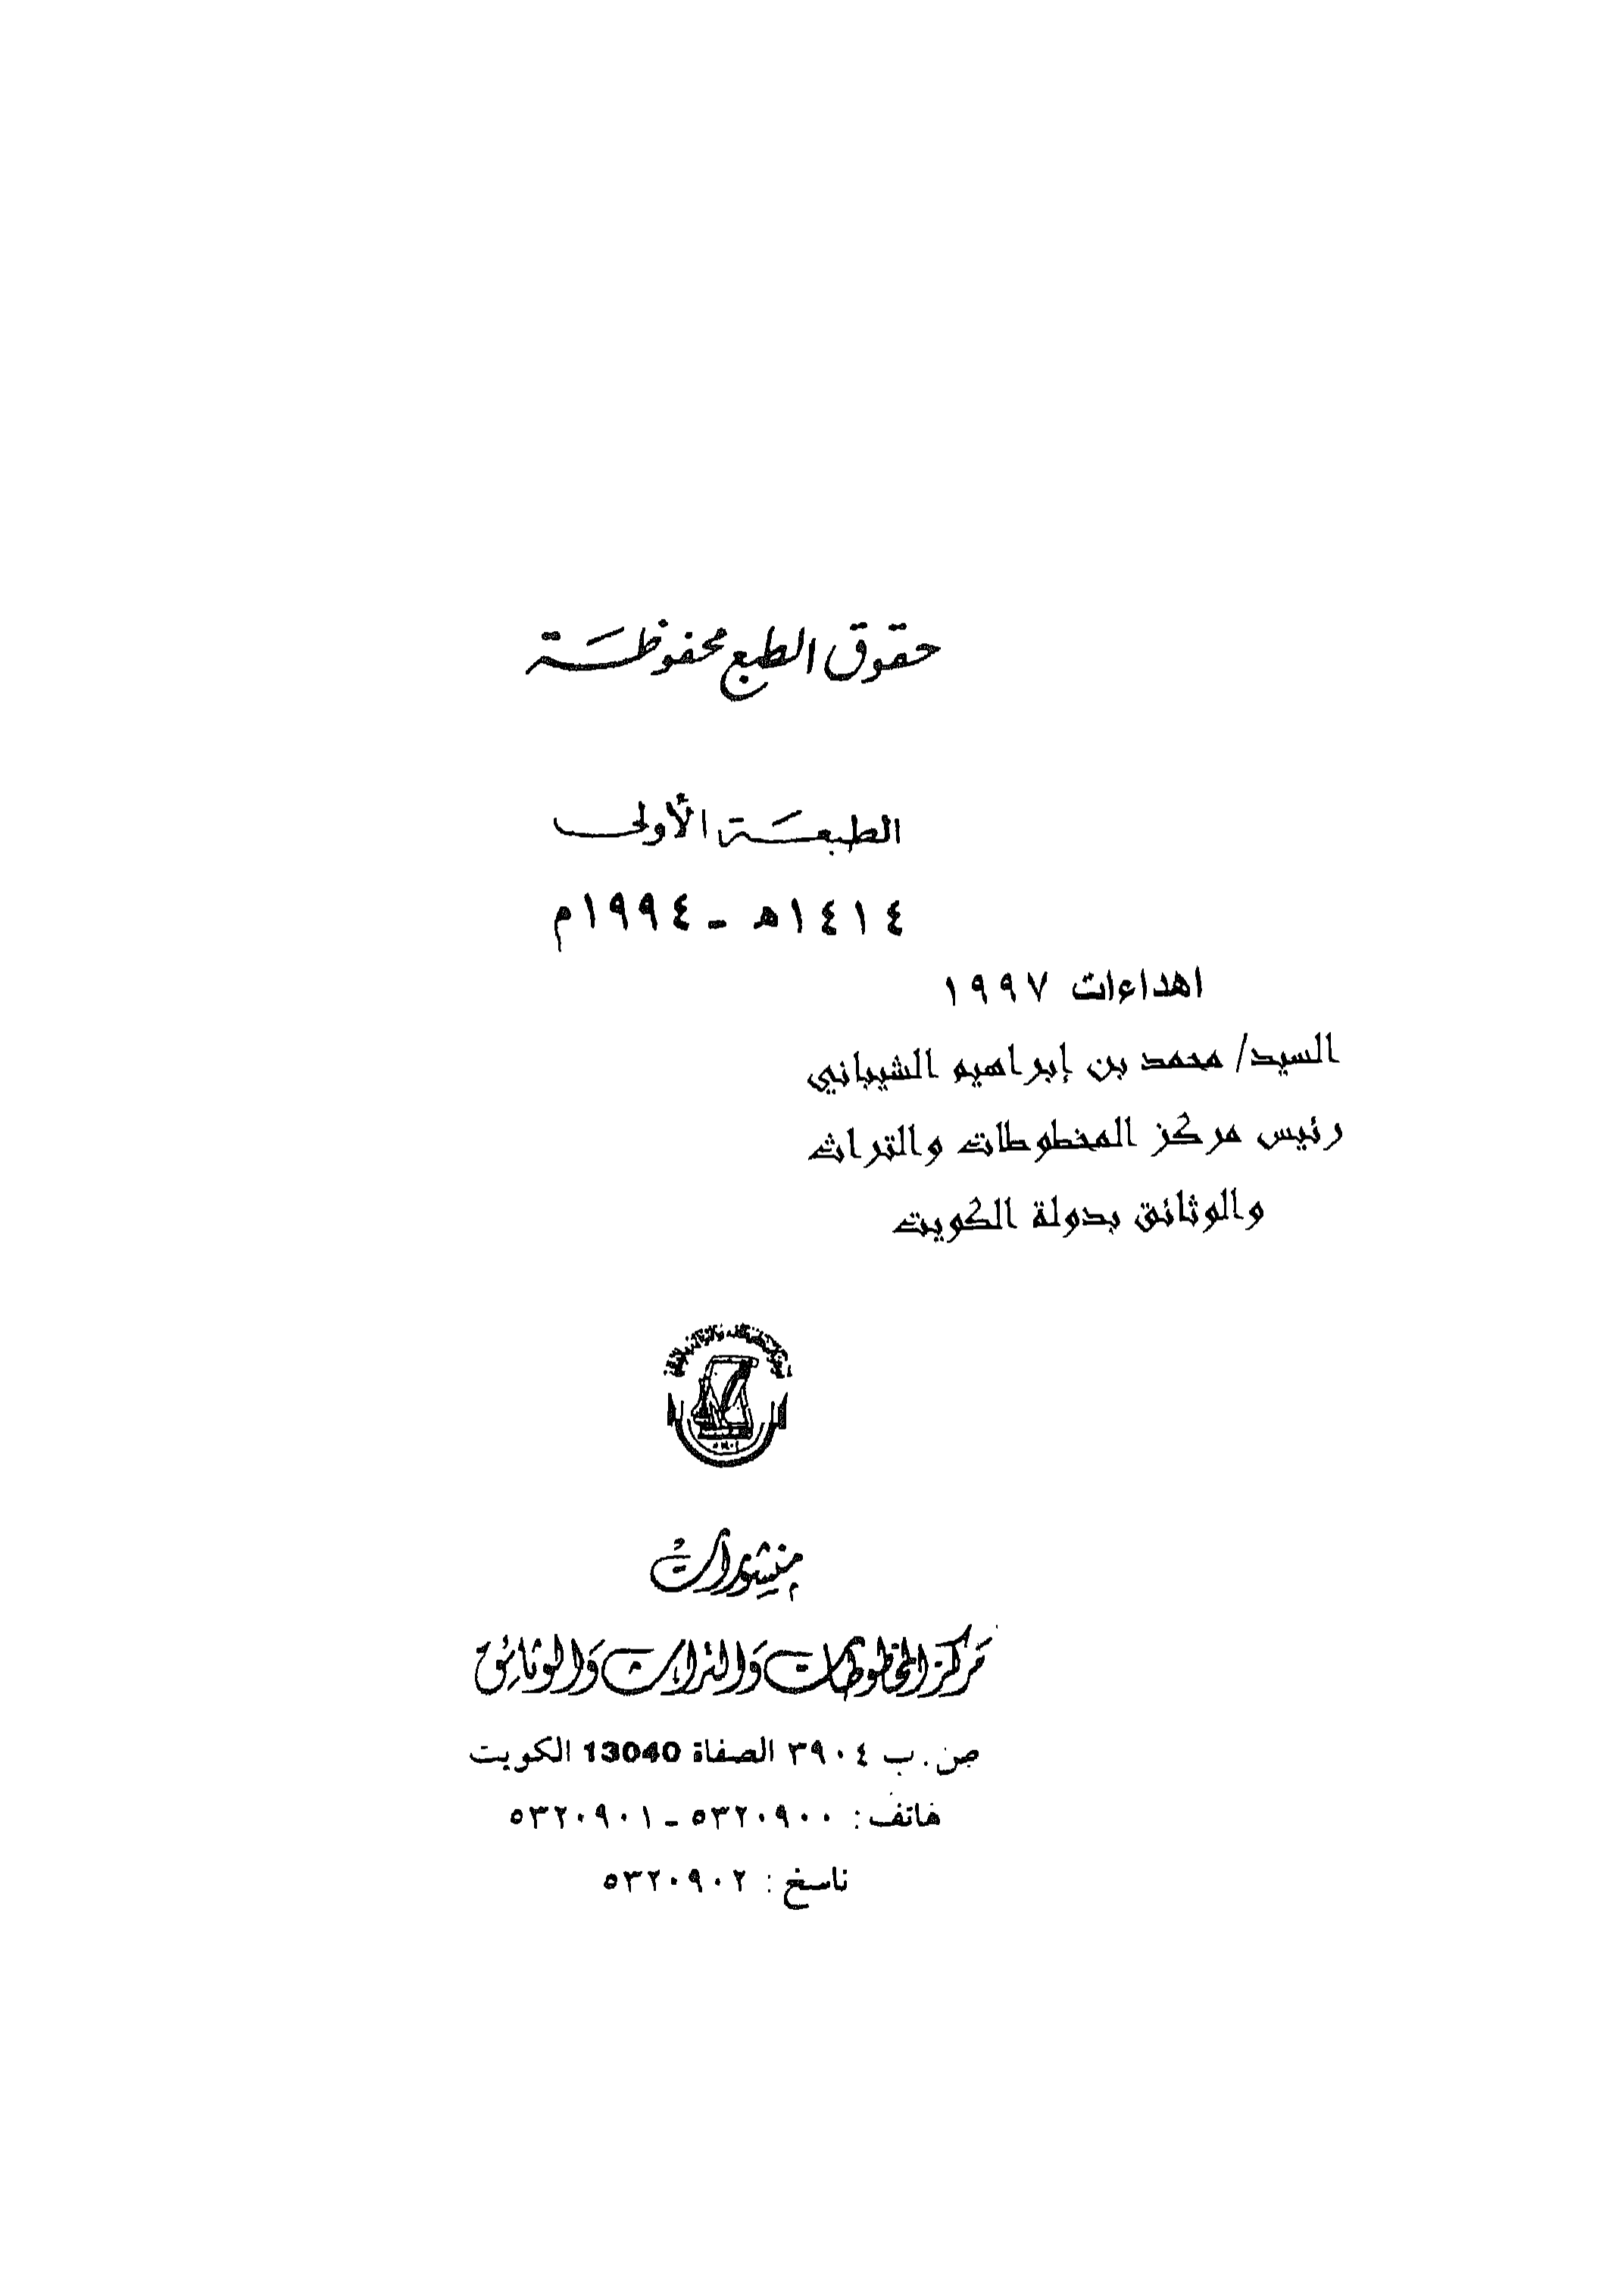 حقوق الطبع محفوظة
الطبعة الأولى
١٤١٤هـ - ١٩٩٤م
اهداءات ١٩٩٧
السيد/ محمد بن إبراهيم الشيباني
رئيس مركز المخطوطات والتراث
والوثائق بدولة الكويت
منشورات
مركز المخطوطات والتراث والوثائق
ص. ب ٣٩٠٤ الصفاة 13040 الكويت
هاتف: ٥٣٢٠٩٠٠ - ٥٣٢٠٩٠١
ناسخ: ٥٣٢٠٩٠٢